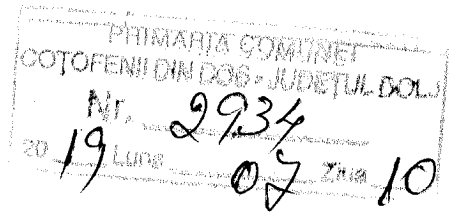 PRIMĂRIA COMUNEI
COȚOFENII DIN DOS - JUDEȚUL DOLJ
Nr. 2934
2019 Luna 07 Ziua 10